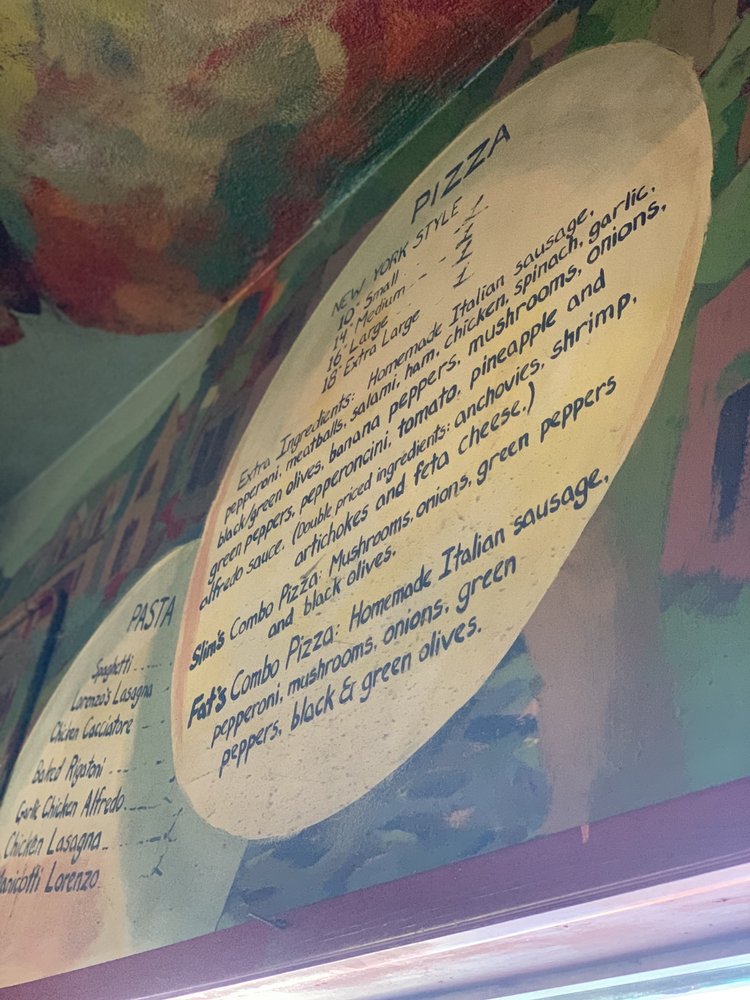 PIZZA
NEW YORK STYLE
10" Small
14" Medium
16" Large
18" Extra Large
Extra Ingredients: Homemade Italian sausage,
pepperoni, meatballs, salami, ham, chicken, spinach, garlic,
black/green olives, banana peppers, mushrooms, onions,
green peppers, pepperoncini, tomato, pineapple and
alfredo sauce. (Double priced ingredients: anchovies, shrimp,
artichokes and feta cheese.)
Slim's Combo Pizza: Mushrooms, onions, green peppers
and black olives.
Fat's Combo Pizza: Homemade Italian sausage,
pepperoni, mushrooms, onions, green
peppers, black & green olives.
PASTA
Spaghetti
Lorenzo's Lasagna
Chicken Cacciatore
Baked Rigatoni
Garlic Chicken Alfredo
Chicken Lasagna
Manicotti Lorenzo